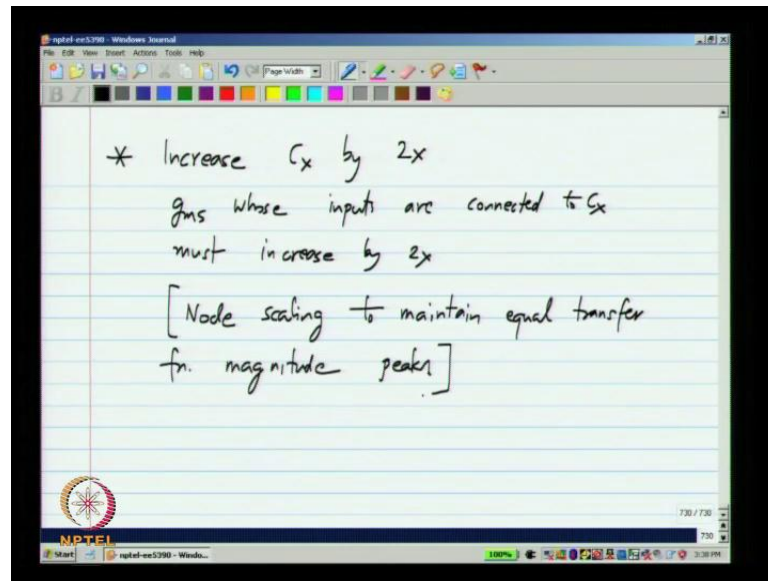 nptel-ee5390 - Windows Journal
File Edit View Insert Actions Tools Help
Page Width
B I
* Increase Cx by 2x
gms whose inputs are connected to Cx
must increase by 2x
[Node scaling to maintain equal transfer
fn. magnitude peaks]
730 / 730
730
NPTEL
Start nptel-ee5390 - Windo... 100% 3:38 PM